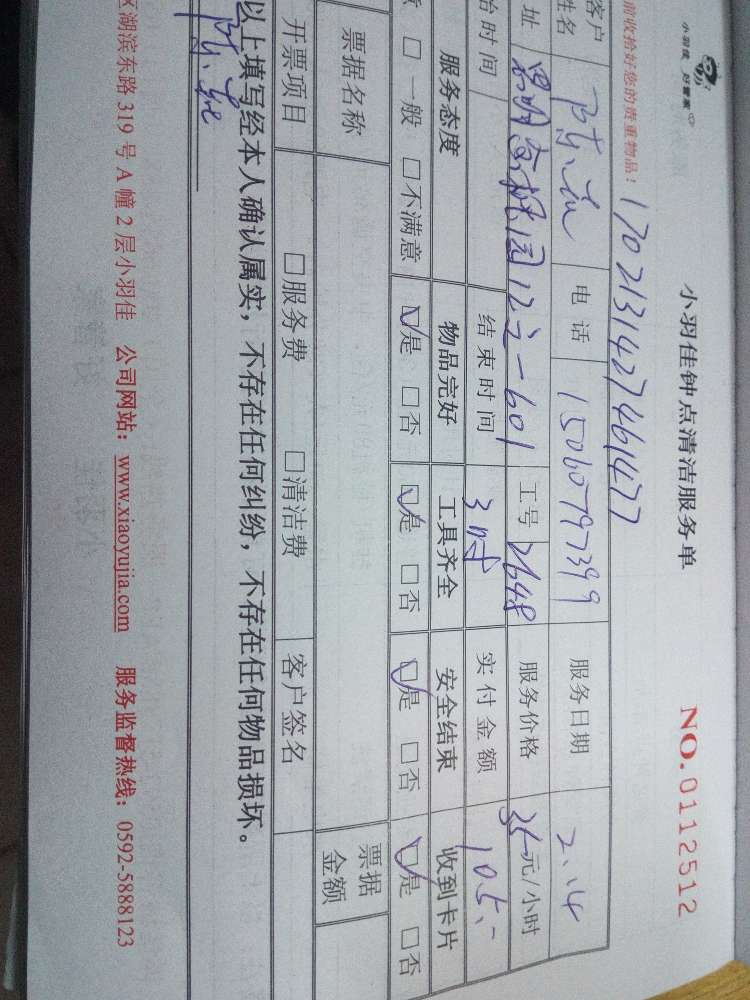 小羽佳 好管家
小羽佳钟点清洁服务单
NO.0112512
前收拾好您的贵重物品!
17021314274461477
客户
姓名
电话
15060797399
服务日期
2.14
址
工号
2648
服务价格
35元/小时
始时间
结束时间
3时
实付金额
105.-
服务态度
物品完好
工具齐全
安全结束
收到卡片
□一般 □不满意
□是 □否
□是 □否
□是 □否
□是 □否
票据名称
票据
金额
开票项目
□服务费
□清洁费
客户签名
以上填写经本人确认属实,不存在任何纠纷,不存在任何物品损坏。
区湖滨东路 319 号 A 幢 2 层小羽佳 公司网站:www.xiaoyujia.com 服务监督热线:0592-5888123